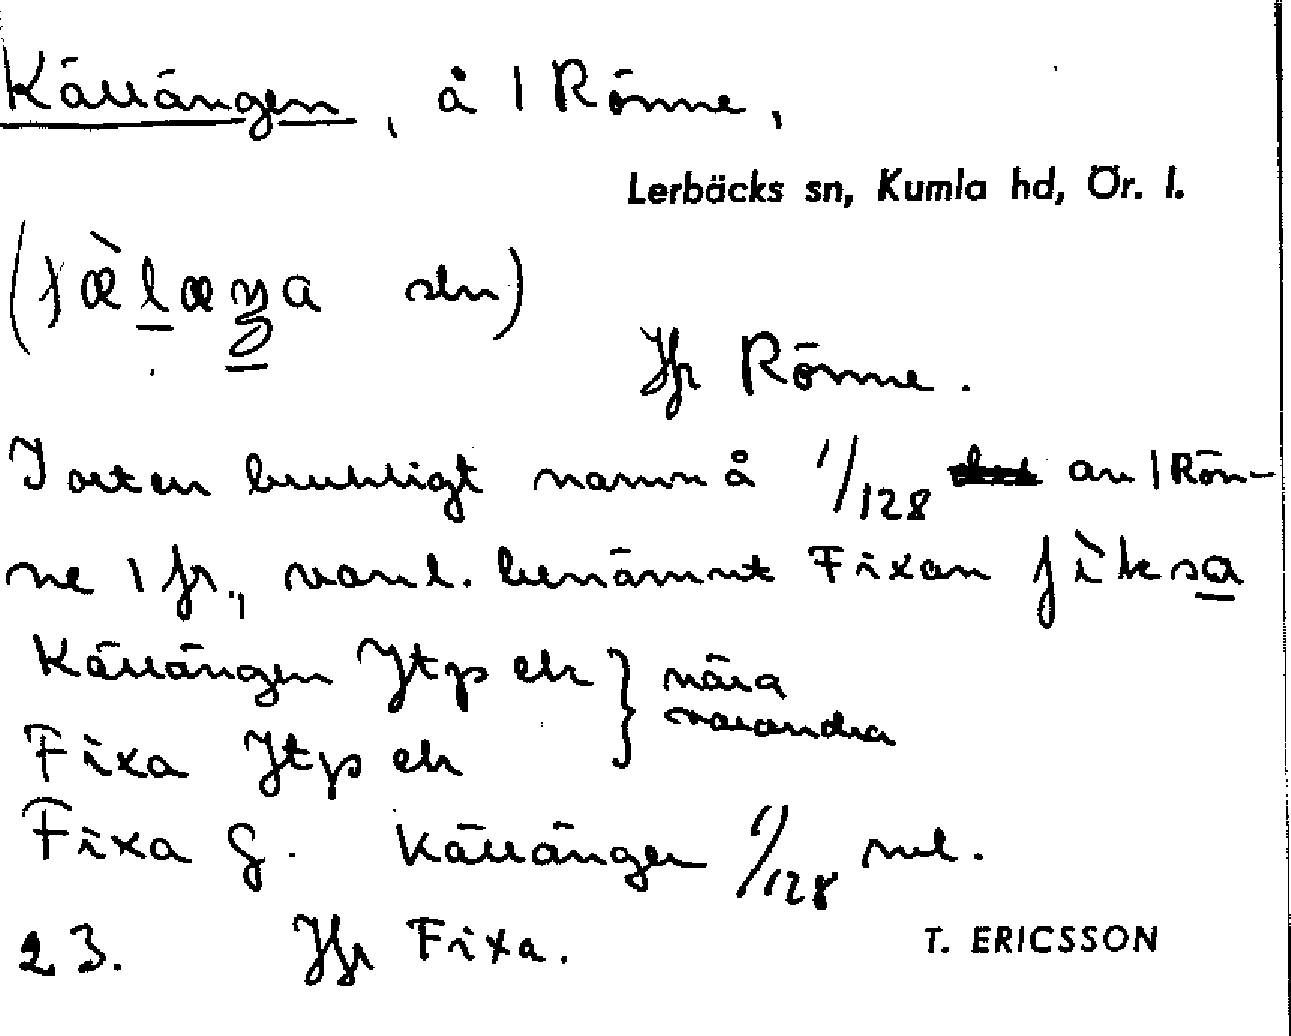 Källängen, å 1 Rönne,
Lerbäcks sn, Kumla hd, Ör. l.
sdn)
Jfr Rönne.
I orten brukligt namn å 1/128 av 1 Rön-
ne 1 fr., vanl. benämnt Fixan
Källängen Jtp ek } nära varandra
Fixa Jtp ek
Fixa g. Källängen 1/128 mtl.
23. Jfr Fixa.
T. ERICSSON